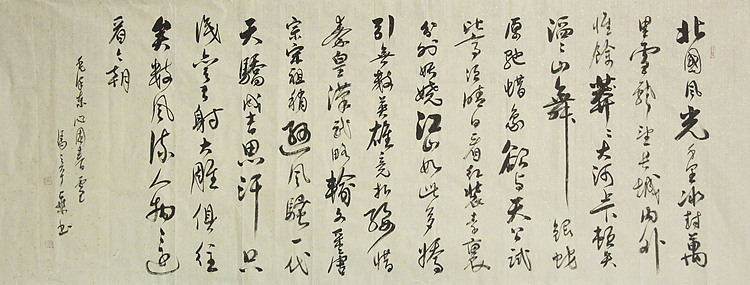 北國風光千里冰封萬
里雪飄望長城內外
惟餘莽〻大河上下頓失
滔〻山舞銀蛇
原馳蜡象欲與天公試
比高須晴日看紅裝素裹
分外妖嬈江山如此多嬌
引無數英雄競折腰惜
秦皇漢武略輸文采唐
宗宋祖稍遜風騷一代
天驕成吉思汗只
識彎弓射大雕俱往
矣數風流人物還
看今朝
毛澤東沁園春雪
馬書